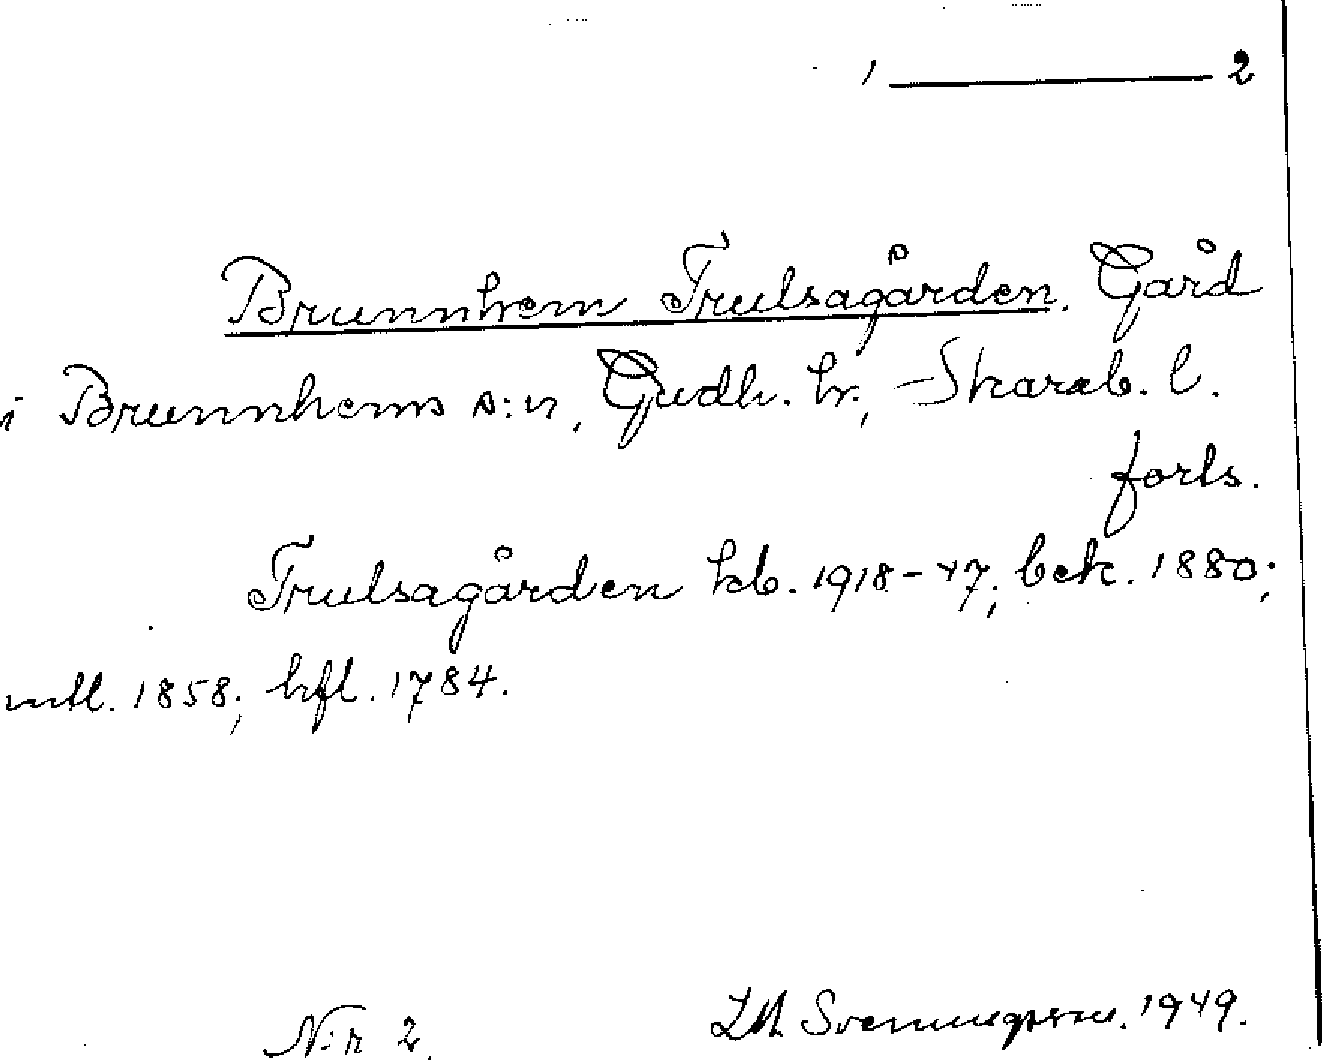 1 ——— 2
Brunnhem Trulsagården. Gård
i Brunnhems s:n, Gudh. hr, Skarab. l.
forts.
Trulsagården kb. 1918-47; bek. 1880;
mtl. 1858; hfl. 1784.
N:r 2. Svenungsson. 1949.